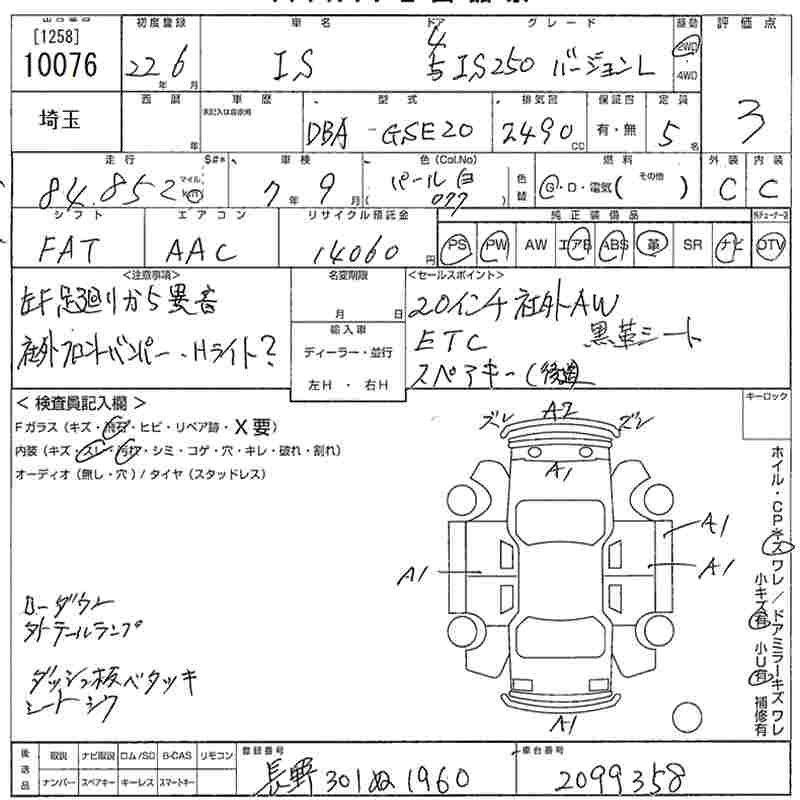 [1258]
10076
埼玉
初度登録
22年 6月
車名
IS
ドア
4
5
グレード
IS250 バージョンL
駆動
2WD
4WD
評価点
3
西暦
年
車歴
未記入は自家用
型式
DBA-GSE20
排気量
2490 CC
保証書
有・無
定員
5名
走行
84,852 マイル km
S#*
車検
7年 9月
色(Col.No)
パール白
077
色替
燃料
G・D・電気( その他 )
外装
C
内装
C
シフト
FAT
エアコン
AAC
リサイクル預託金
14060円
純正装備品
PS PW AW エアB ABS 革 SR ナビ
外チューナー含
DTV
<注意事項>
左F足廻りから異音
社外フロントバンパー、Hライト?
名変期限
月 日
輸入車
ディーラー・並行
左H ・ 右H
<セールスポイント>
20インチ社外AW
ETC 黒革シート
スペアキー(後送)
< 検査員記入欄 >
Fガラス(キズ・飛石・ヒビ・リペア跡・X要)
内装(キズ・スレ・汚れ・シミ・コゲ・穴・キレ・破れ・割れ)
オーディオ(無し・穴)/タイヤ(スタッドレス)
キーロック
ズレ A2 ズレ
A1
A1
A1
A1
A1
ホイル・CPキズ ワレ/ドアミラーキズ ワレ
小キズ有 小U有 補修有
ローダウン
外テールランプ
ダッシュ板ベタツキ
シートシワ
後送品
取説 ナビ取説 ロム/SD B-CAS リモコン
ナンバー スペアキー キーレス スマートキー
登録番号
長野 301 ぬ 1960
車台番号
2099358